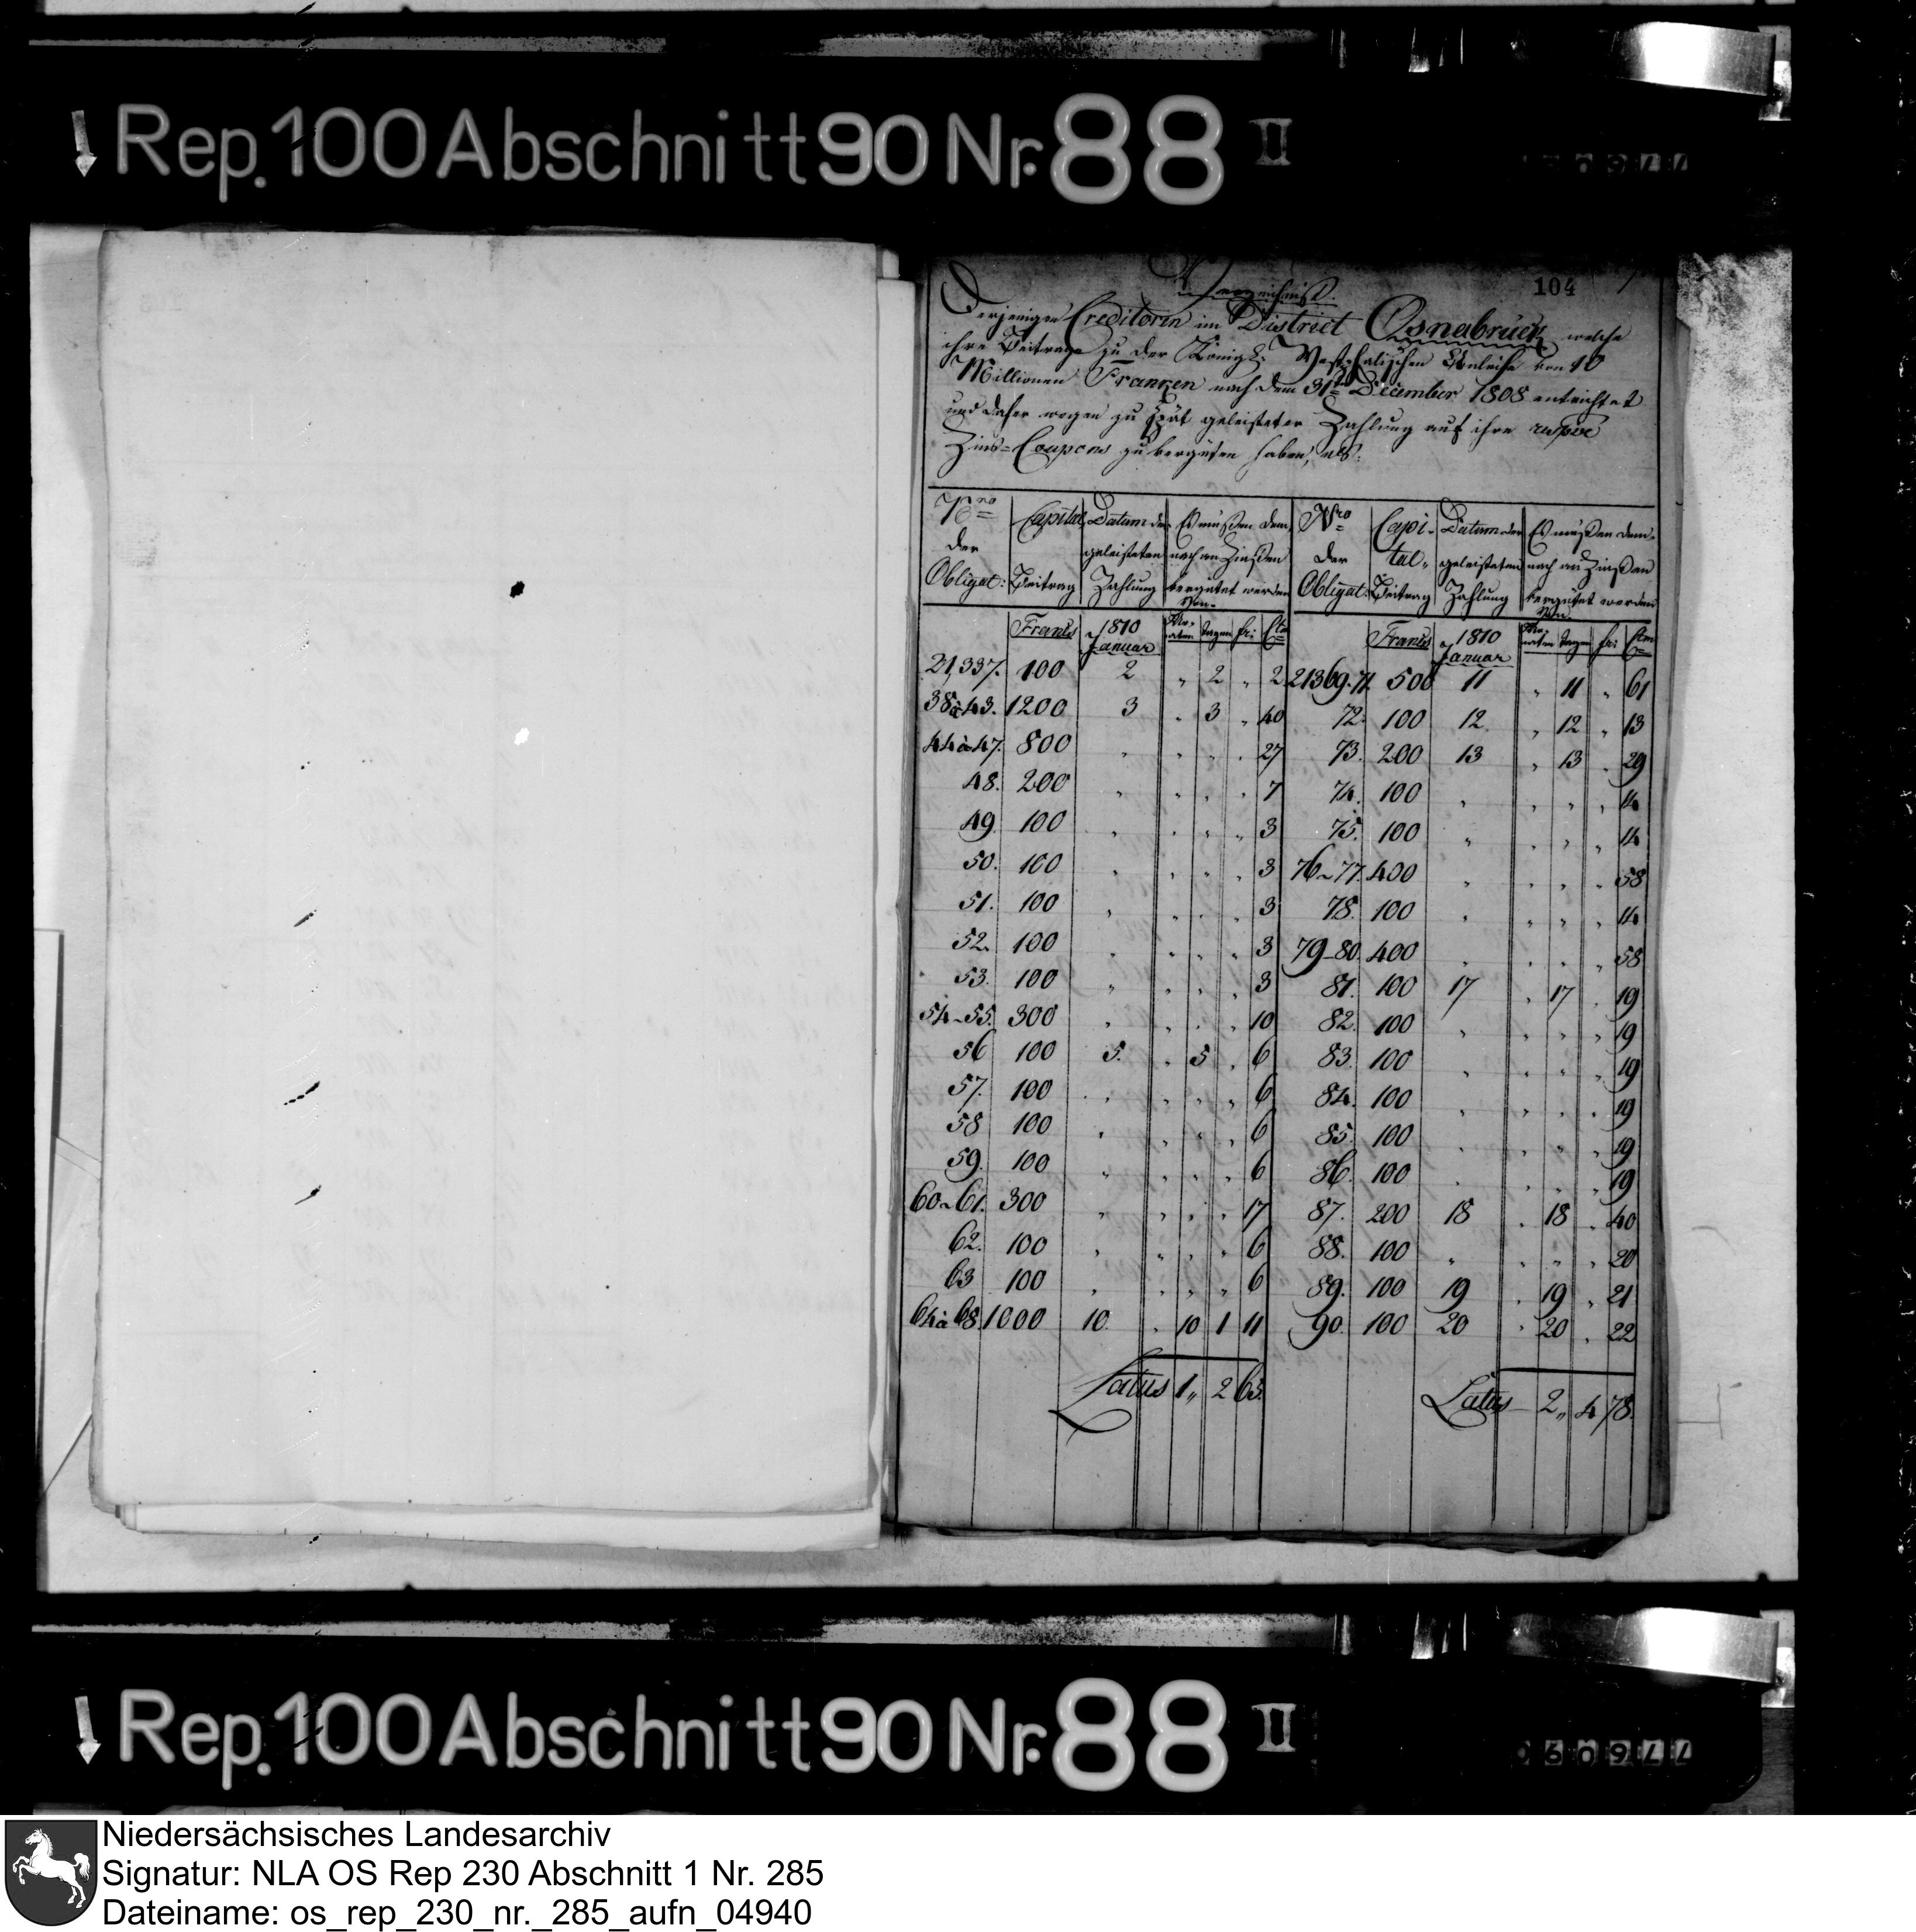 Rep. 100 Abschnitt 90 Nr. 88 II
104
Verzeichniß.
Derjenigen Creditoren im District Osnabrück welche
ihre Beitrage zu der Königl: Westphalischen Anleihe von 10
Millionen Franken nach dem 31ten December 1808 entrichtet
und daher wegen zu spät geleisteter Zahlung auf ihre respve
Zins-Coupons zu vergüten haben, als:
Nro der Obligat: | Capital Beitrag | Datum der geleisteten Zahlung | Es müßen dem nach an Zinßen vergütet werden | Nro der Obligat: | Capi- tal- Beitrag | Datum der geleisteten Zahlung | Es müßen dem- nach an Zinßen vergütet werden
Francs | 1810 Januar | Mo- naten | Tagen | fr: | Cts | Francs | 1810 Januar | Mo- naten | Tagen | fr: | Ctm
21,337. 100 2 " 2 " 2 21369.71. 500 11 " 11 " 61
38 à 43. 1200 3 " 3 " 40 72. 100 12 " 12 " 13
44 à 47. 800 " " " " 27 73. 200 13 " 13 " 29
48. 200 " " " " 7 74. 100 " " " " 14
49. 100 " " " " 3 75. 100 " " " " 14
50. 100 " " " " 3 76-77. 400 " " " " 58
51. 100 " " " " 3 78. 100 " " " " 14
52. 100 " " " " 3 79-80. 400 " " " " 58
53. 100 " " " " 3 81. 100 17 " 17 " 19
54-55. 300 " " " " 10 82. 100 " " " " 19
56 100 5. " 5 " 6 83. 100 " " " " 19
57. 100 " " " " 6 84. 100 " " " " 19
58 100 " " " " 6 85. 100 " " " " 19
59. 100 " " " " 6 86. 100 " " " " 19
60-61. 300 " " " " 17 87. 200 18 " 18 " 40
62. 100 " " " " 6 88. 100 " " " " 20
63 100 " " " " 6 89. 100 19 " 19 " 21
64 à 68. 1000 10. " 10 1 11 90. 100 20 " 20 " 22
Latus 1,, 2 65. Latus 2,, 4 78.
Rep. 100 Abschnitt 90 Nr. 88 II
Niedersächsisches Landesarchiv
Signatur: NLA OS Rep 230 Abschnitt 1 Nr. 285
Dateiname: os_rep_230_nr._285_aufn_04940